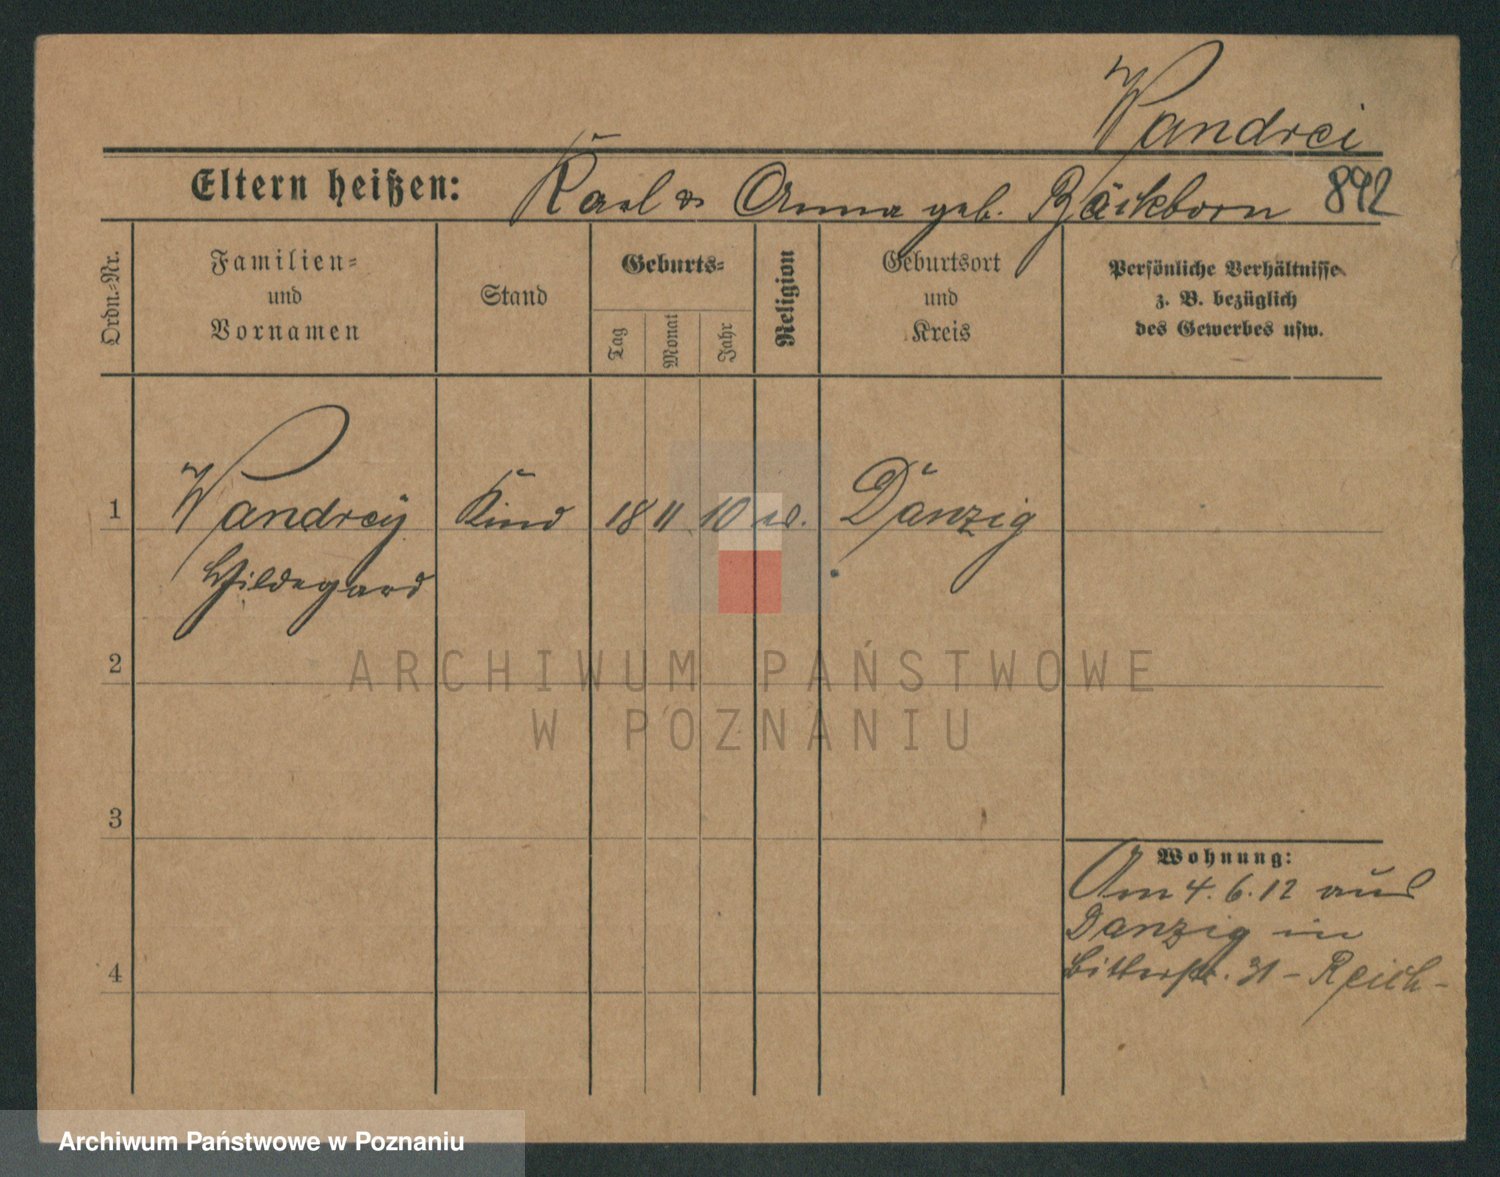 Wandrei
Eltern heißen: Karl & Anna geb. Bäckborn 892
Ordn.-Nr.
Familien-
und
Vornamen
Stand
Geburts-
Tag
Monat
Jahr
Religion
Geburtsort
und
Kreis
Persönliche Verhältnisse
z. B. bezüglich
des Gewerbes usw.
1 Wandrey Kind 18 11 10 ev. Danzig
Hildegard
2
3
4
Wohnung:
Am 4.6.12 aus
Danzig in
Bitterstr. 31 - Reich-
ARCHIWUM PAŃSTWOWE
W POZNANIU
Archiwum Państwowe w Poznaniu